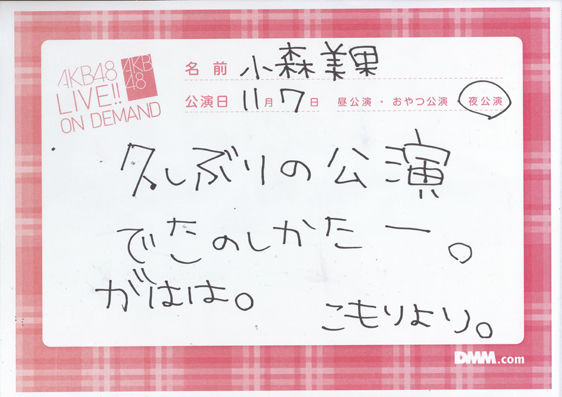 AKB48
LIVE!!
ON DEMAND
AKB
48
名前 小森美果
公演日 11月7日 昼公演・おやつ公演 夜公演
久しぶりの公演
でたのしかたー。
がはは。
こもりより。
DMM.com